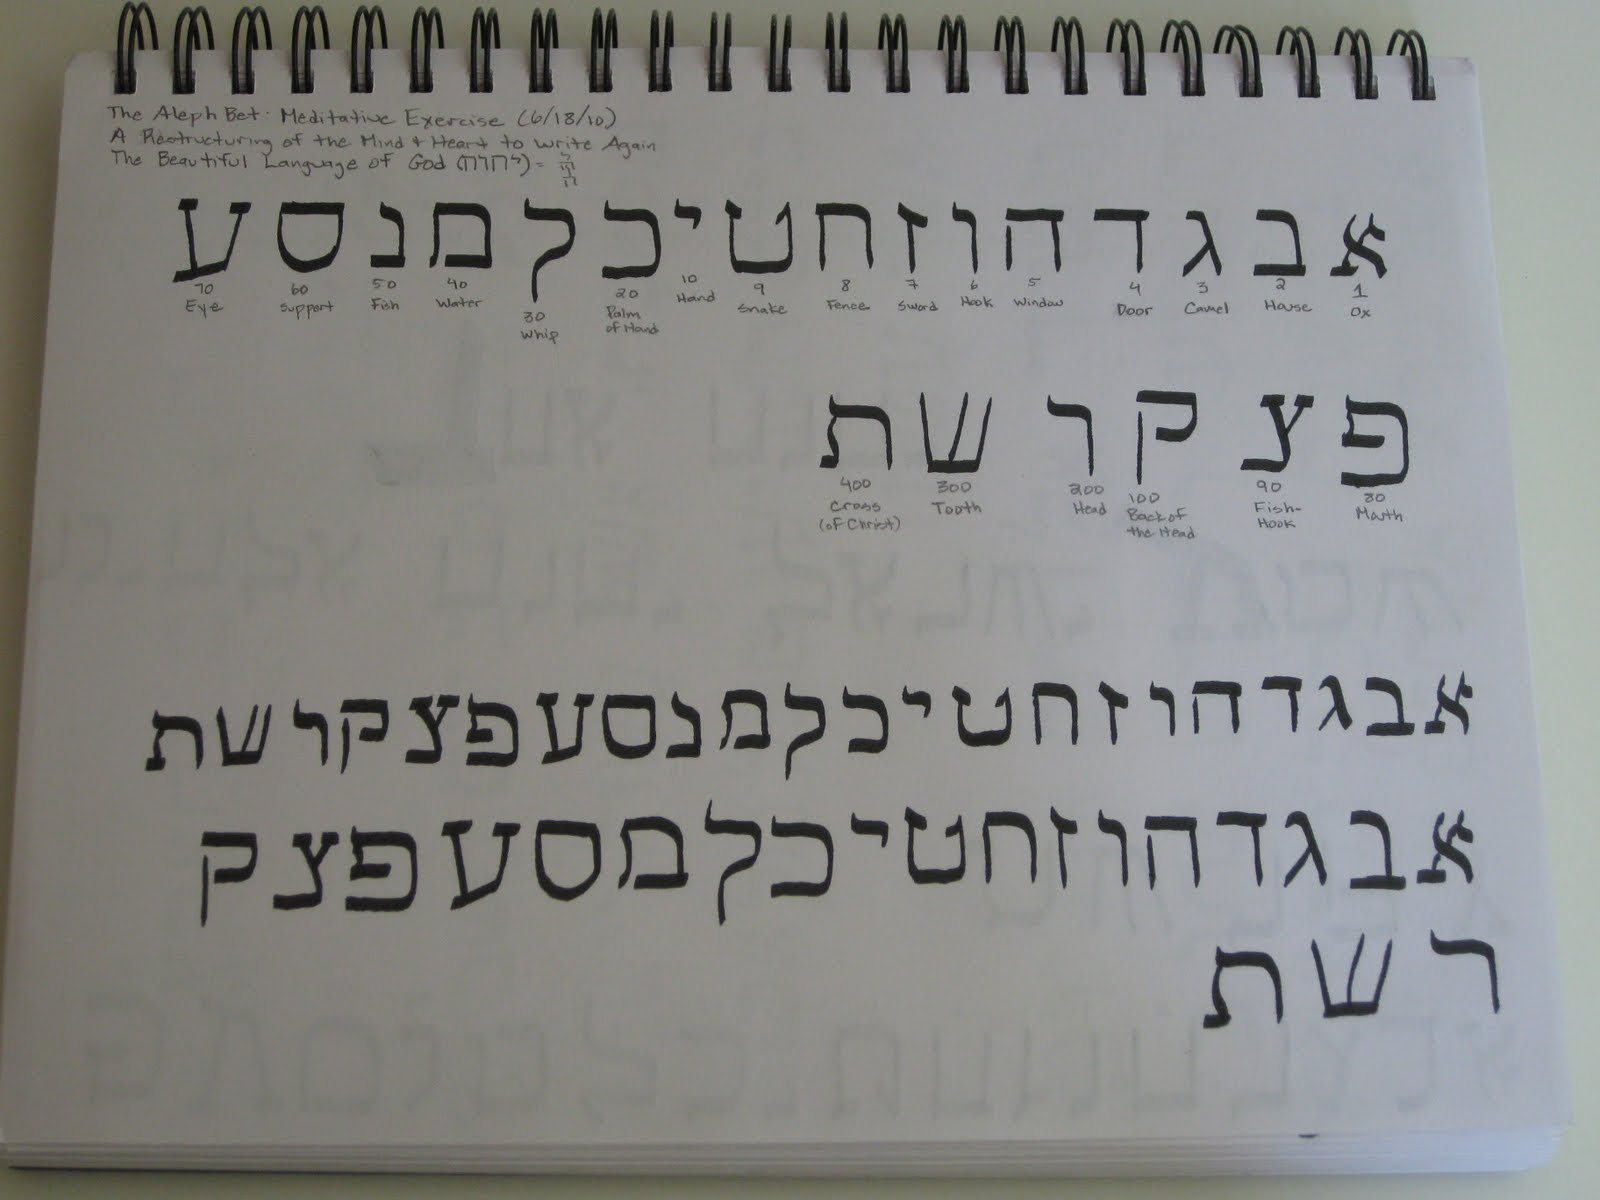 The Aleph Bet: Meditative Exercise (6/18/10)
A Restructuring of the Mind + Heart to Write Again
The Beautiful Language of God (יהוה) =
א ב ג ד ה ו ז ח ט י כ ל מ נ ס ע
1 2 3 4 5 6 7 8 9 10 20 30 40 50 60 70
Ox House Camel Door Window Hook Sword Fence Snake Hand Palm of Hand Whip Water Fish Support Eye
פ צ ק ר ש ת
80 90 100 200 300 400
Mouth Fish-Hook Back of the Head Head Tooth Cross (of Christ)
א ב ג ד ה ו ז ח ט י כ ל מ נ ס ע פ צ ק ר ש ת
א ב ג ד ה ו ז ח ט י כ ל מ ס ע פ צ ק
ר ש ת